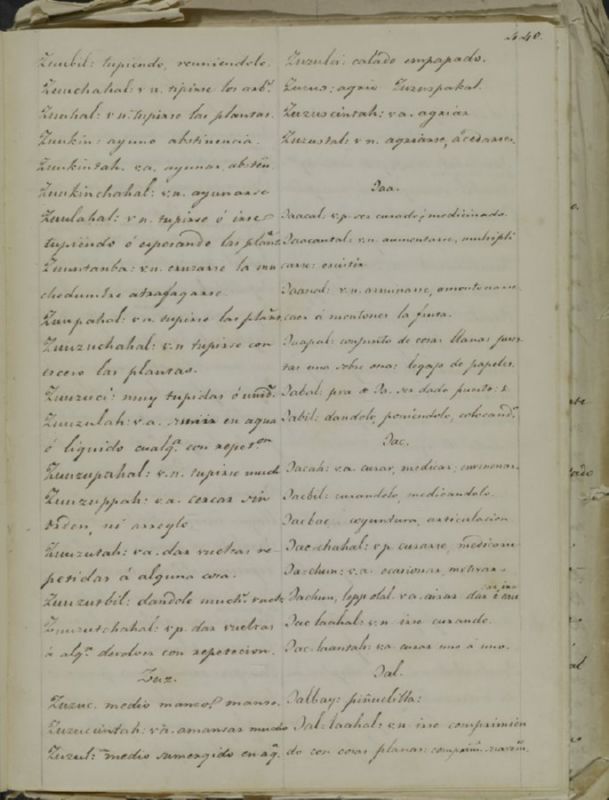 440.
Zuubil: tupiendo, reuniendolo.
Zuuchahal: v n. tipirse los arbs.
Zuuhal: v n. tupirse las plantas.
Zuukin: ayuno abstinencia.
Zuukintah. v a. ayunar, absten
Zuukinchahal: v.n. ayunarse
Zuulahal: v n. tupirse ó irse
tupiendo ó esperando las plans.
Zuuntanba: v.n. cruzarse la mu
chedumbre atrafagarse.
Zuupahal: v n. tupirse las plans.
Zuuzuchahal: v.n tupirse con
esceso las plantas.
Zuuzuci: muy tupidas ó unids.
Zuuzulah: v.a. en agua
ó liquido cualqa. con repeton
Zuuzupahal: v.n. tupirse much
Zuuzuppah: v a. cercar sin
orden, ni arreglo
Zuuzutah: v a. dar vueltas re-
petidas á alguna cosa.
Zuuzutbil: dandole mucht. vuelt
Zuuzutchahal: v p. dar vueltas
á algo. devolver con repeticion.
Zuz.
Zuzuc. medio manso? manso.
Zuzucцintah: v a. amansar mucho
Zuzul: medio sumergido en aga.
Zuzulci: calado empapado.
Zuzus: agrio Zuzuspakal.
Zuzuscintah: v a. agriar
Zuzustal: v n. agriarse, acedarse.
Daa.
Daacal: v.p. ser curado, medicinado.
Daacantal: v.n. aumentarse, multipli
carse: existir
Daanal: v.n. arruinarse, amontonarse
caer á montones la fruta.
Daapal: conjunto de cosas llanas pues
tas una sobre otra: legajo de papeles.
Dabal: pra de Da. ser dado puesto: &.
Dabil: dandolo, poniendolo, colocando.
Dac.
Dacah: v.a. curar, medicar,
Dacbil: curandolo, medicandolo.
Dacbac coyuntura, articulacion
Dac-chahal: v p curarse, medicarse
Da-chun: v.a. ocasionar, motivar
Dachun, lepp olal v.a. airar dar
Dac laahal: v n irse curando.
Dac-laantah: v.a curar uno á uno.
Dal.
Dalbay: piñuelilla:
Dal: laahal: v.n irse comprimien
do con cosas planas: